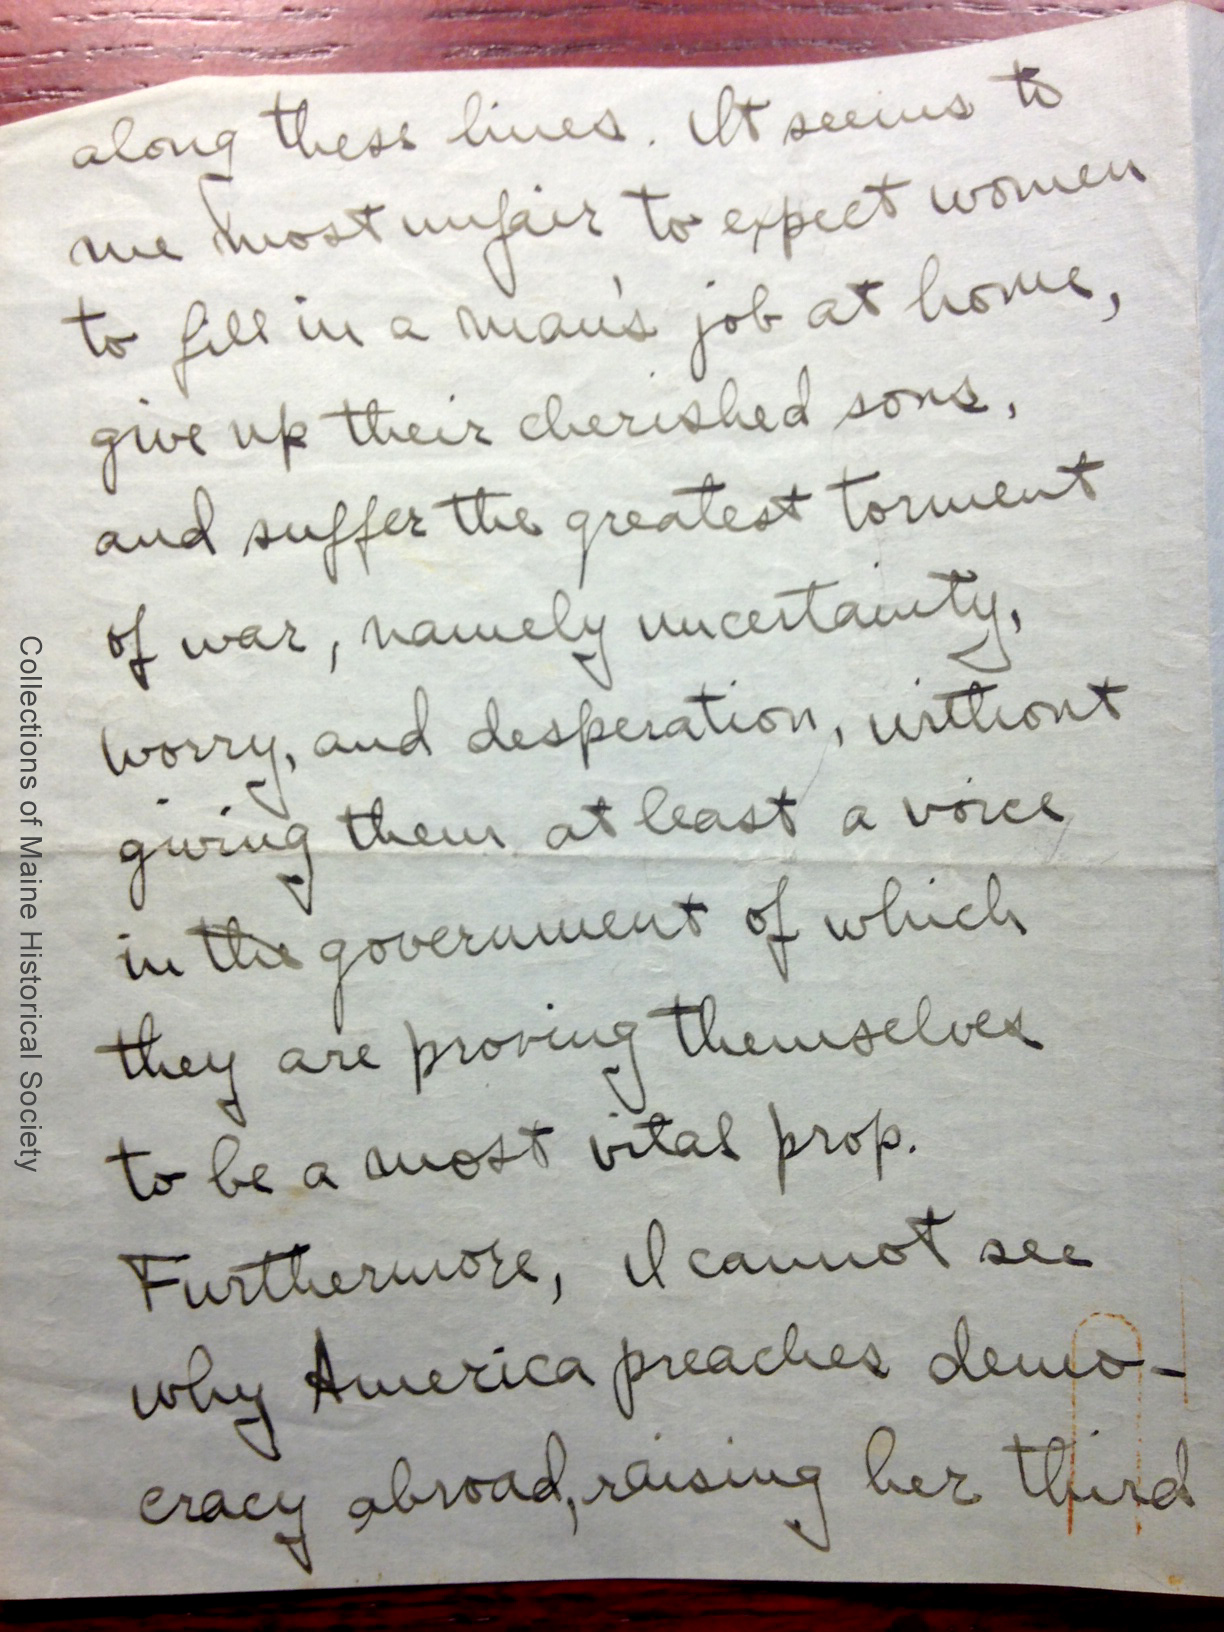 along these lines. It seems to
me most unfair to expect women
to fill in a man's job at home,
give up their cherished sons,
and suffer the greatest torment
of war, namely uncertainty,
worry, and desperation, without
giving them at least a voice
in the government of which
they are proving themselves
to be a most vital prop.
Furthermore, I cannot see
why America preaches demo-
cracy abroad, raising her third
Collections of Maine Historical Society